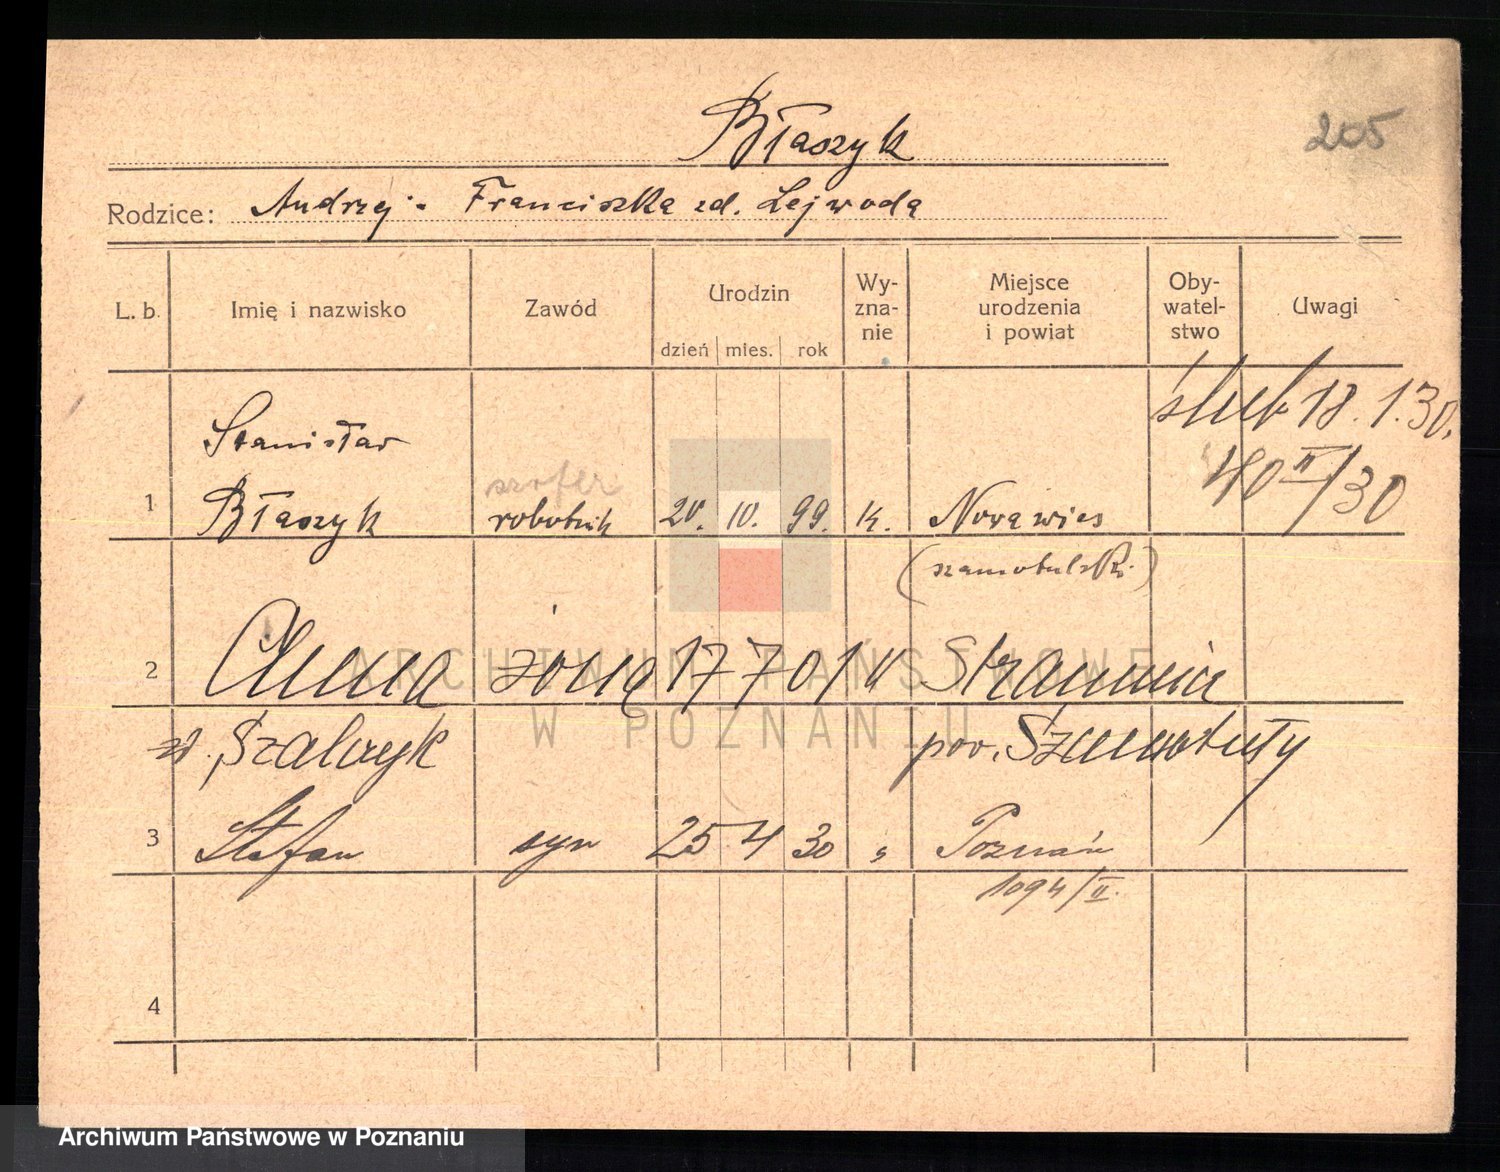 Błaszyk
205
Rodzice: Andrzej - Franciszka zd. Lejwoda
L. b. Imię i nazwisko Zawód Urodzin dzień mies. rok Wy-zna-nie Miejsce urodzenia i powiat Oby-watel-stwo Uwagi
ślub 18.1.30.
40 II/30
Stanisław
szofer
1 Błaszyk robotnik 20. IV. 99. k. Nowawies
(szamotulski.)
2 Anna żona 17 7 01 k
zd. pow. Szamotuły
3 Stefan syn 25 4 30 " Poznań
1094/II.
4
ARCHIWUM PAŃSTWOWE
W POZNANIU
Archiwum Państwowe w Poznaniu